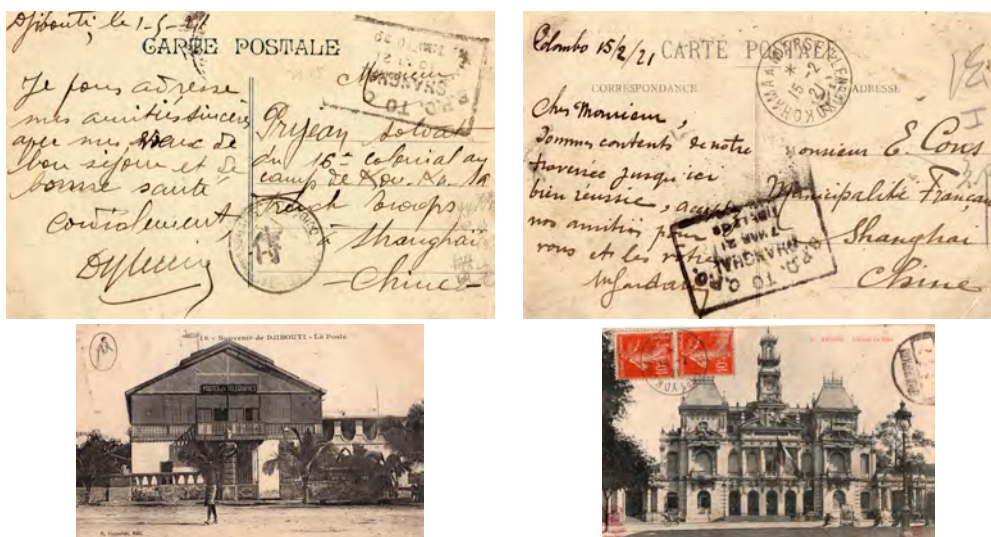 Djibouti, le 1-5-21
CARTE POSTALE
Monsieur
Je vous adresse
mes amitiés sincères
avec mes vœux de
bon séjour et de
bonne santé
cordialement
Prijean soldat
du 16e colonial au
camp de Kou-Ka-Za
French troops
à Shanghaï
- Chine -
I.P.O. TO C.P.O.
SHANGHAI
Colombo 15/2/21
CARTE POSTALE
CORRESPONDANCE
ADRESSE
Cher Monsieur,
Sommes contents de notre
traversée jusqu'ici
bien réussie,
nos amitiés pour
vous et les vôtres
Monsieur E. Cons
Municipalité Française
Shanghai
Chine
YOKOHAMA A MARSEILLE
15-2
21
I.P.O. TO C.P.O.
SHANGHAI
7 MAR 21
18 - Souvenir de DJIBOUTI - La Poste
POSTES et TELEGRAPHES
SAIGON